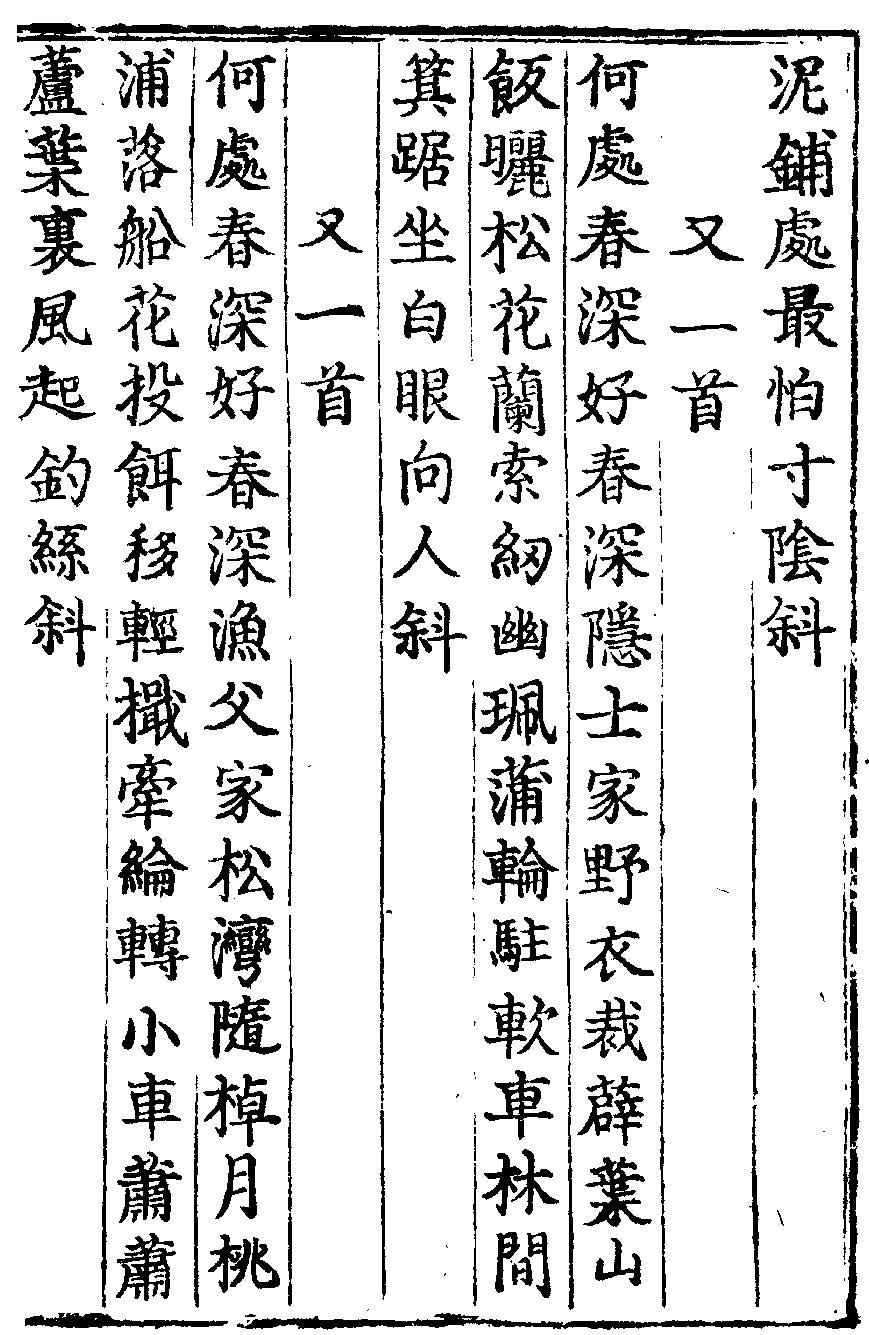 泥鋪處最怕寸陰斜
又一首
何處春深好春深隱士家野衣裁薜葉山
飯曬松花蘭索紉幽珮蒲輪駐軟車林間
箕踞坐白眼向人斜
又一首
何處春深好春深漁父家松灣隨棹月桃
浦落船花投餌移輕檝牽綸轉小車蕭蕭
蘆葉裏風起釣絲斜